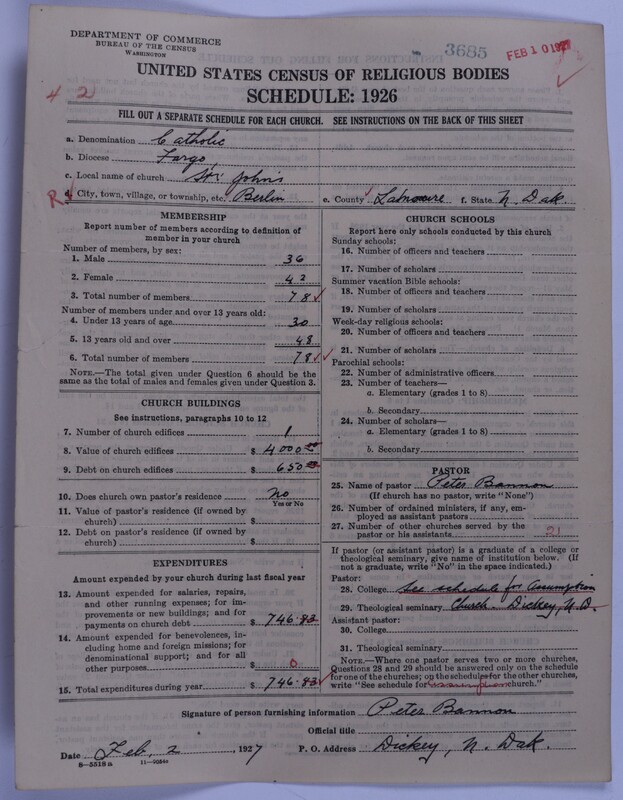 DEPARTMENT OF COMMERCE
BUREAU OF THE CENSUS
WASHINGTON
3685
FEB 10 1927
UNITED STATES CENSUS OF RELIGIOUS BODIES
4 2
SCHEDULE: 1926
FILL OUT A SEPARATE SCHEDULE FOR EACH CHURCH. SEE INSTRUCTIONS ON THE BACK OF THIS SHEET
a. Denomination Catholic
b. Diocese Fargo
c. Local name of church St. John's
R d. City, town, village, or township, etc. Berlin e. County Lamoure f. State N. Dak.
MEMBERSHIP
Report number of members according to definition of member in your church
Number of members, by sex:
1. Male 36
2. Female 42
3. Total number of members 78
Number of members under and over 13 years old:
4. Under 13 years of age 30
5. 13 years old and over 48
6. Total number of members 78
NOTE.—The total given under Question 6 should be
same as the total of males and females given under Question 3.
CHURCH BUILDINGS
See instructions, paragraphs 10 to 12
7. Number of church edifices 1
8. Value of church edifices $ 4000.00
9. Debt on church edifices $ 650.00
10. Does church own pastor's residence No
Yes or No
11. Value of pastor's residence (if owned by
church) $
12. Debt on pastor's residence (if owned by
church) $
EXPENDITURES
Amount expended by your church during last fiscal year
13. Amount expended for salaries, repairs,
and other running expenses; for im-
provements or new buildings; and for
payments on church debt $ 746.83
14. Amount expended for benevolences, in-
cluding home and foreign missions; for
denominational support; and for all
other purposes $ 0
15. Total expenditures during year $ 746.83
CHURCH SCHOOLS
Report here only schools conducted by this church
Sunday schools:
16. Number of officers and teachers
17. Number of scholars
Summer vacation Bible schools:
18. Number of officers and teachers
19. Number of scholars
Week-day religious schools:
20. Number of officers and teachers
21. Number of scholars
Parochial schools:
22. Number of administrative officers
23. Number of teachers—
a. Elementary (grades 1 to 8)
b. Secondary
24. Number of scholars—
a. Elementary (grades 1 to 8)
b. Secondary
PASTOR
25. Name of pastor Peter Bannon
(If church has no pastor, write "None")
26. Number of ordained ministers, if any, em-
ployed as assistant pastors
27. Number of other churches served by the
pastor or his assistants 2
If pastor (or assistant pastor) is a graduate of a college or
theological seminary, give name of institution below. (If
not a graduate, write "No" in the space indicated.)
Pastor:
28. College See schedule for Assumption
29. Theological seminary Church. Dickey, N.D.
Assistant pastor:
30. College
31. Theological seminary
NOTE.—Where one pastor serves two or more churches,
Questions 28 and 29 should be answered only on the schedule
for one of the churches; on the schedules for the other churches,
write "See schedule for Assumption church."
Signature of person furnishing information Peter Bannon
Official title
Date Feb. 2, 1927 P. O. Address Dickey, N. Dak.
8—5518a